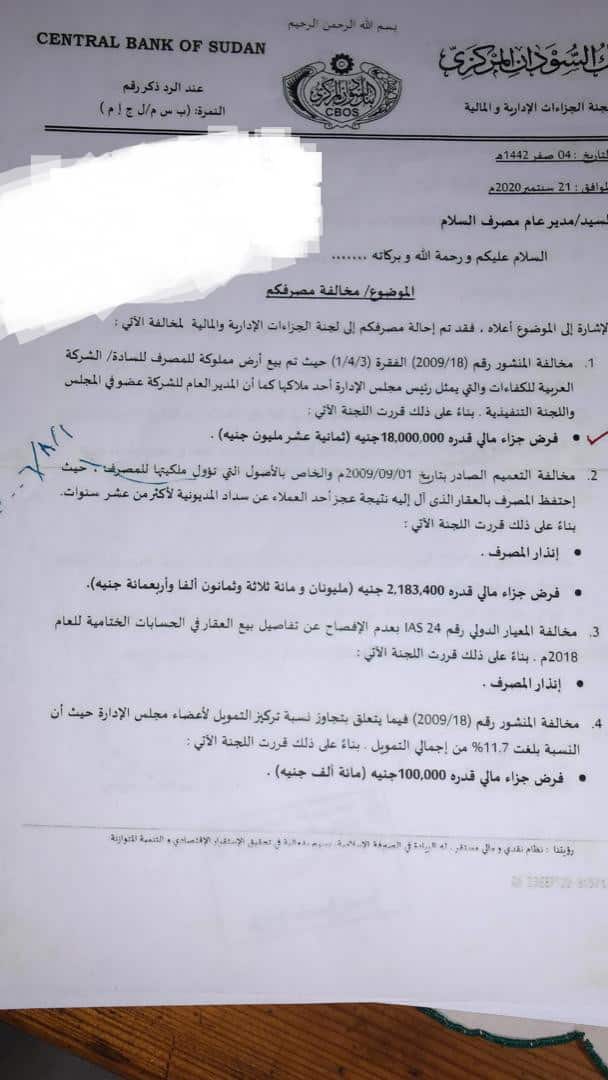 بسم الله الرحمن الرحيم
CENTRAL BANK OF SUDAN
السودان المركزي
CBOS
عند الرد ذكر رقم
النمرة: (ب س م/ل ج إ م )
لجنة الجزاءات الإدارية و المالية
التاريخ : 04 صفر 1442هـ
الموافق : 21 سبتمبر 2020م
السيد/مدير عام مصرف السلام
السلام عليكم و رحمة الله و بركاته .......
الموضوع/ مخالفة مصرفكم
الإشارة إلى الموضوع أعلاه ، فقد تم إحالة مصرفكم إلى لجنة الجزاءات الإدارية والمالية لمخالفة الآتي :
1. مخالفة المنشور رقم (2009/18) الفقرة (1/4/3) حيث تم بيع أرض مملوكة للمصرف للسادة/ الشركة
العربية للكفاءات والتي يمثل رئيس مجلس الإدارة أحد ملاكها كما أن المدير العام للشركة عضو في المجلس
واللجنة التنفيذية . بناءً على ذلك قررت اللجنة الآتي :
• فرض جزاء مالي قدره 18,000,000جنيه (ثمانية عشر مليون جنيه) .
2. مخالفة التعميم الصادر بتاريخ 2009/09/01م والخاص بالأصول التي تؤول ملكيتها للمصرف حيث
إحتفظ المصرف بالعقار الذى آل إليه نتيجة عجز أحد العملاء عن سداد المديونية لأكثر من عشر سنوات.
بناءً على ذلك قررت اللجنة الآتي :
• إنذار المصرف .
• فرض جزاء مالي قدره 2,183,400 جنيه (مليونان و مائة ثلاثة وثمانون ألفا وأربعمائة جنيه).
3. مخالفة المعيار الدولي رقم IAS 24 بعدم الإفصاح عن تفاصيل بيع العقار في الحسابات الختامية للعام
2018م . بناءً على ذلك قررت اللجنة الآتي :
• إنذار المصرف .
4. مخالفة المنشور رقم (2009/18) فيما يتعلق بتجاوز نسبة تركيز التمويل لأعضاء مجلس الإدارة حيث أن
النسبة بلغت 11.7% من إجمالي التمويل . بناءً على ذلك قررت اللجنة الآتي :
• فرض جزاء مالي قدره 100,000جنيه (مائة ألف جنيه) .
رؤيتنا : نظام نقدي و مالي مستقر ، له الريادة في الصيرفة الإسلامية، يسهم بفعالية في تحقيق الإستقرار الإقتصادي و التنمية المتوازنة.